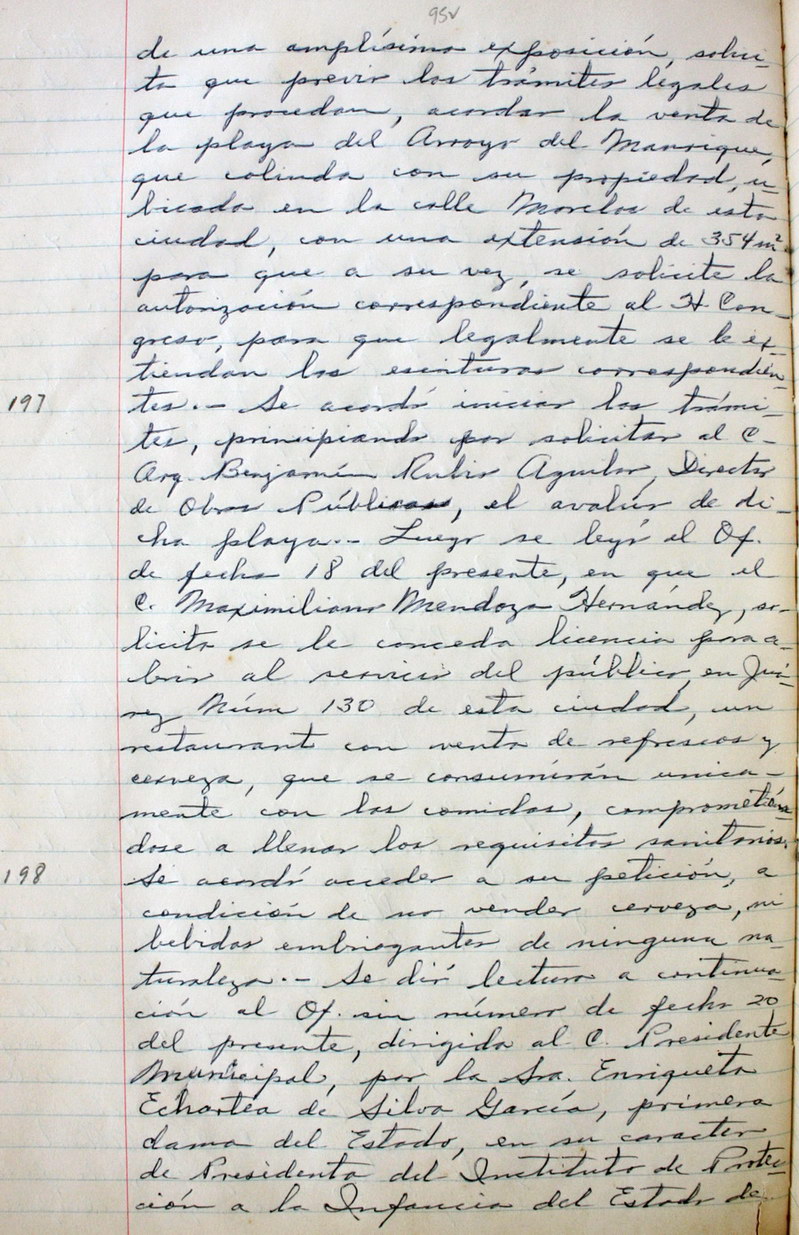 95v
de una amplísima exposición, solici-
ta que previo los trámites legales
que procedan, acordar la venta de
la playa del Arroyo del Manrique,
que colinda con su propiedad, u-
bicada en la calle Morelos de esta
ciudad, con una extensión de 354 m²
para que a su vez, se solicite la
autorización correspondiente al H. Con-
greso, para que legalmente se le ex-
tiendan las escrituras correspondien-
197 tes.- Se acordó iniciar los trámi-
tes, principiando por solicitar al C-
Arq. Benjamín Rubio Aguilar, Director
de Obras Públicas, el avalúo de di-
cha playa.- Luego se leyó el Of.
de fecha 18 del presente, en que el
C. Maximiliano Mendoza Hernández, so-
licita se le conceda licencia para a-
brir al servicio del público, en Juá-
rez Núm 130 de esta ciudad, un
restaurant con venta de refrescos y
cerveza, que se consumirán unica-
mente con las comidas, comprometién-
dose a llenar los requisitos sanitarios.
198 Se acordó acceder a su petición, a
condición de no vender cerveza, ni
bebidas embriagantes de ninguna na-
turaleza.- Se dió lectura a continua-
ción al Of. sin número de fecha 20
del presente, dirigida al C. Presidente
Municipal, por la Sra. Enriqueta
Echartea de Silva García, primera
dama del Estado, en su caracter
de Presidenta del Instituto de Protec-
ción a la Infancia del Estado de